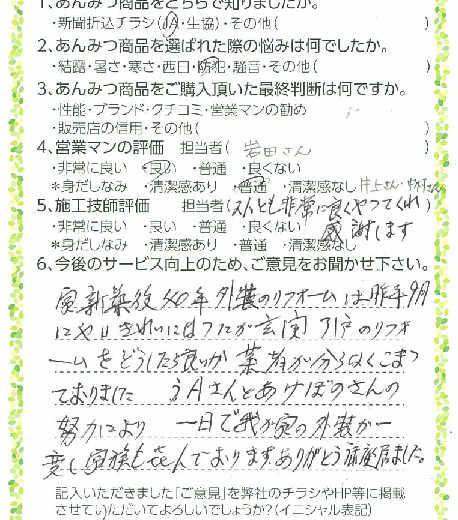 1、あんみつ商品をどちらで知りましたか。
・新聞折込チラシ(JA・生協)・その他( )
2、あんみつ商品を選ばれた際の悩みは何でしたか。
・結露・暑さ・寒さ・西日・防犯・騒音・その他( )
3、あんみつ商品をご購入頂いた最終判断は何ですか。
・性能・ブランド・クチコミ・営業マンの勧め
・販売店の信用・その他( )
4、営業マンの評価 担当者( 岩田さん
・非常に良い ・良い ・普通 ・良くない
*身だしなみ ・清潔感あり ・普通 ・清潔感なし 井上さん・中村さん
5、施工技師評価 担当者(2人とも非常に良くやってくれ
・非常に良い ・良い ・普通 ・良くない 感謝します
*身だしなみ ・清潔感あり ・普通 ・清潔感なし
6、今後のサービス向上のため、ご意見をお聞かせ下さい。
家新築後40年 外装のリフォームは昨年9月
にやりきれいにはなったが玄関引戸のリフォ
ームをどうしたら良いか業者が分らなくこまっ
ておりました JAさんとあけぼのさんの
努力により 一日で我が家の外装が一
変し家族も喜んでおりますありがとう御座居ました
記入いただきました「ご意見」を弊社のチラシやHP等に掲載
させていただいてよろしいでしょうか?(イニシャル表記)